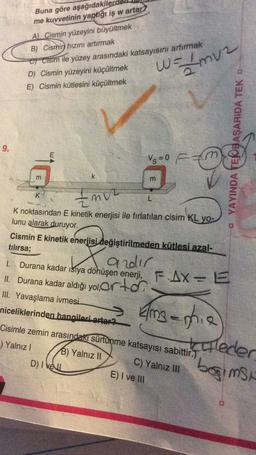 Buna göre aşağıdakilerden
me kuvvetinin yaptığı iş w artar?
A) Cismin yüzeyini büyültmek
B) Cismin hızını artırmak
C) Cisim ile yüzey arasındaki katsayısını artırmak
D) Cismin yüzeyini küçültmek
E) Cismin kütlesini küçültmek
W = 1/2 mv2
YAYINDA TEK BAŞARIDA TEK
9.
E
Vs = 0
F = m
m
k
m
K
1/2 mv2
L
K noktasından E kinetik enerjisi ile fırlatılan cisim KL yo-
lunu alarak duruyor.
Cismin E kinetik enerjisi değiştirilmeden kütlesi azal-
tılırsa;
I. Durana kadar ısıya dönüşen enerji,
F. Δx = E
II. Durana kadar aldığı yol,
artar
III. Yavaşlama ivmesi
kmg = m.a
niceliklerinden hangileri artar?
Cisimle zemin arasındaki sürtünme katsayısı sabittir.)
kütleden
) Yalnız I
B) Yalnız II
C) Yalnız III
D) I ve II
E) I ve III